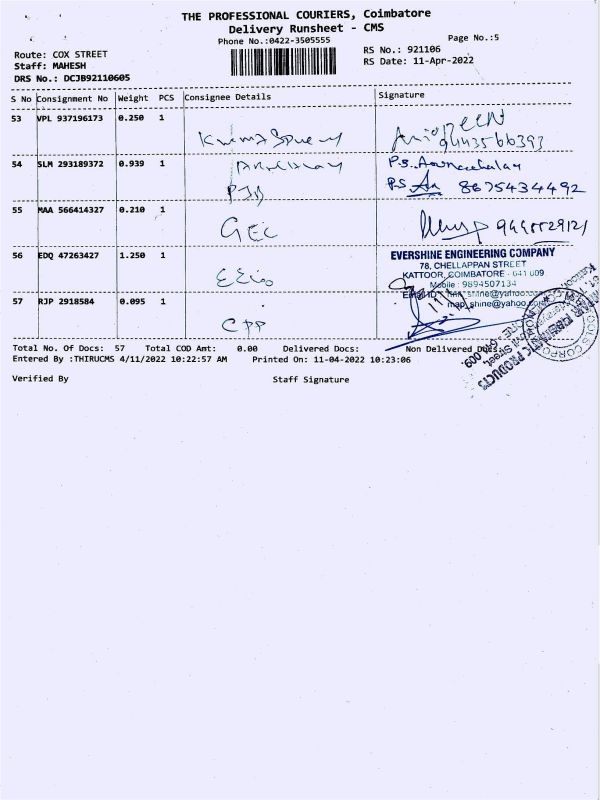 THE PROFESSIONAL COURIERS, Coimbatore
Delivery Runsheet - CMS
Phone No.:0422-3505555
Page No.:5
Route: COX STREET
RS No.: 921106
Staff: MAHESH
RS Date: 11-Apr-2022
DRS No.: DCJB92110605
S No Consignment No Weight PCS Consignee Details Signature
53 VPL 937196173 0.250 1
9443566393
54 SLM 293189372 0.939 1
P.S. Arunachalam
P.S 8675434492
55 MAA 566414327 0.210 1
GEC
56 EDQ 47263427 1.250 1
EVERSHINE ENGINEERING COMPANY
78, CHELLAPPAN STREET
KATTOOR, COIMBATORE - 641 009
Mobile : 9894507134
57 RJP 2918584 0.095 1
CPP
Total No. Of Docs: 57 Total COD Amt: 0.00 Delivered Docs: Non Delivered
Entered By :THIRUCMS 4/11/2022 10:22:57 AM Printed On: 11-04-2022 10:23:06
Verified By Staff Signature